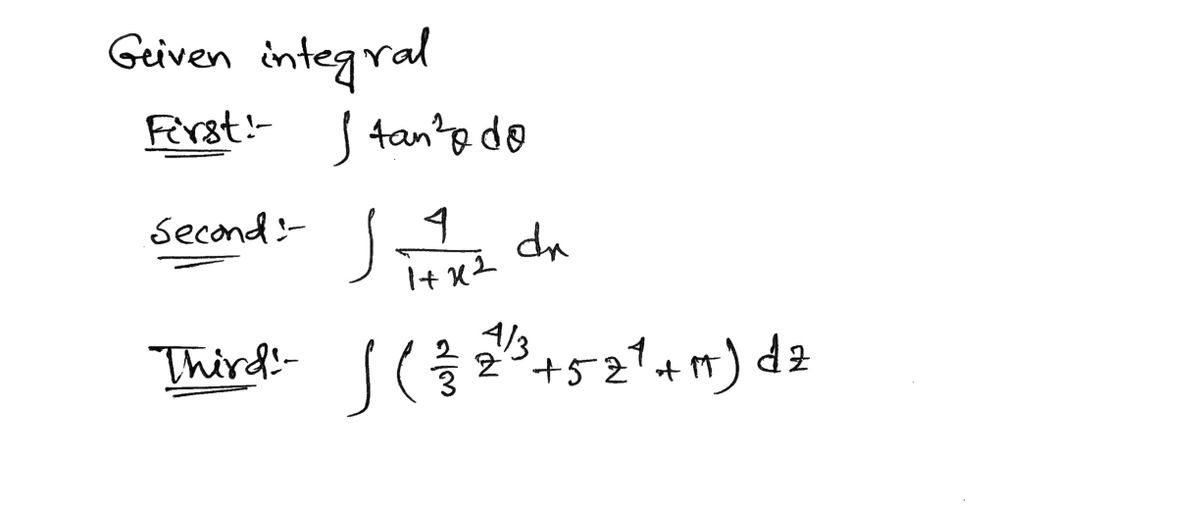 Geiven integral
First:- ∫ tan²θ dθ
Second:- ∫ 4/(1+x²) dx
Third:- ∫ (2/3 z^4/3 + 5z^4 + π) dz